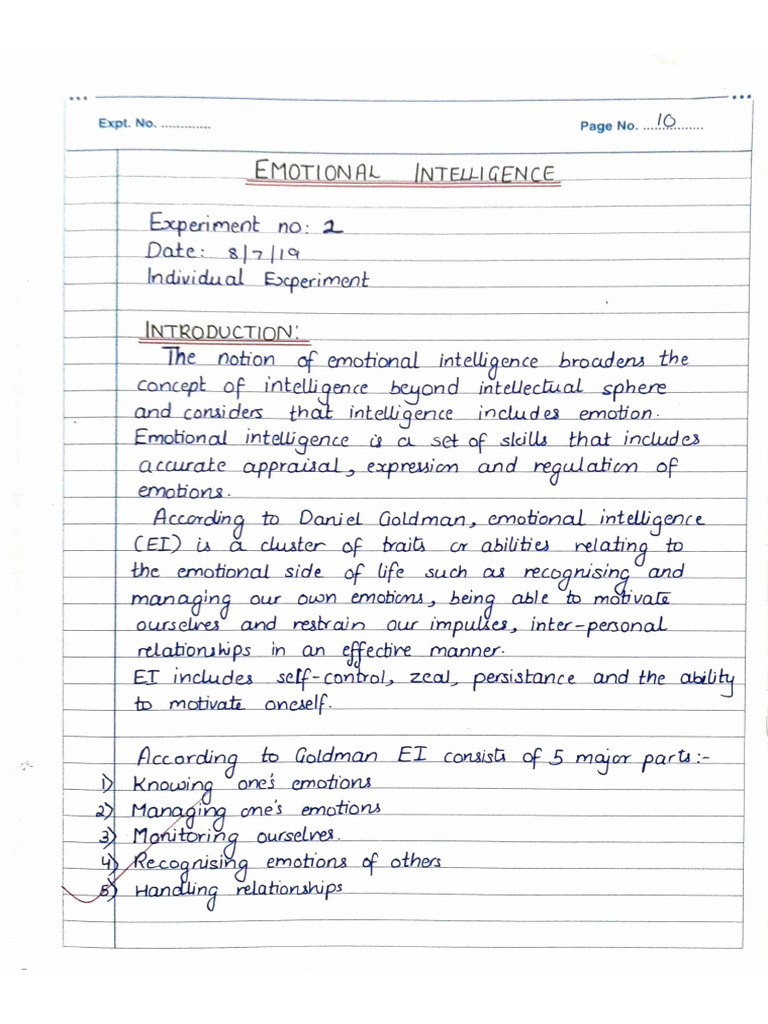 Expt. No. .............
Page No. ....10...........
EMOTIONAL INTELLIGENCE
Experiment no: 2
Date: 8/7/19
Individual Experiment
INTRODUCTION:
The notion of emotional intelligence broadens the
concept of intelligence beyond intellectual sphere
and considers that intelligence includes emotion.
Emotional intelligence is a set of skills that includes
accurate appraisal, expression and regulation of
emotions.
According to Daniel Goldman, emotional intelligence
(EI) is a cluster of traits or abilities relating to
the emotional side of life such as recognising and
managing our own emotions, being able to motivate
ourselves and restrain our impulses, inter-personal
relationships in an effective manner.
EI includes self-control, zeal, persistance and the ability
to motivate oneself.
According to Goldman EI consists of 5 major parts:-
1) Knowing one's emotions
2) Managing one's emotions
3) Monitoring ourselves.
4) Recognising emotions of others
5) Handling relationships